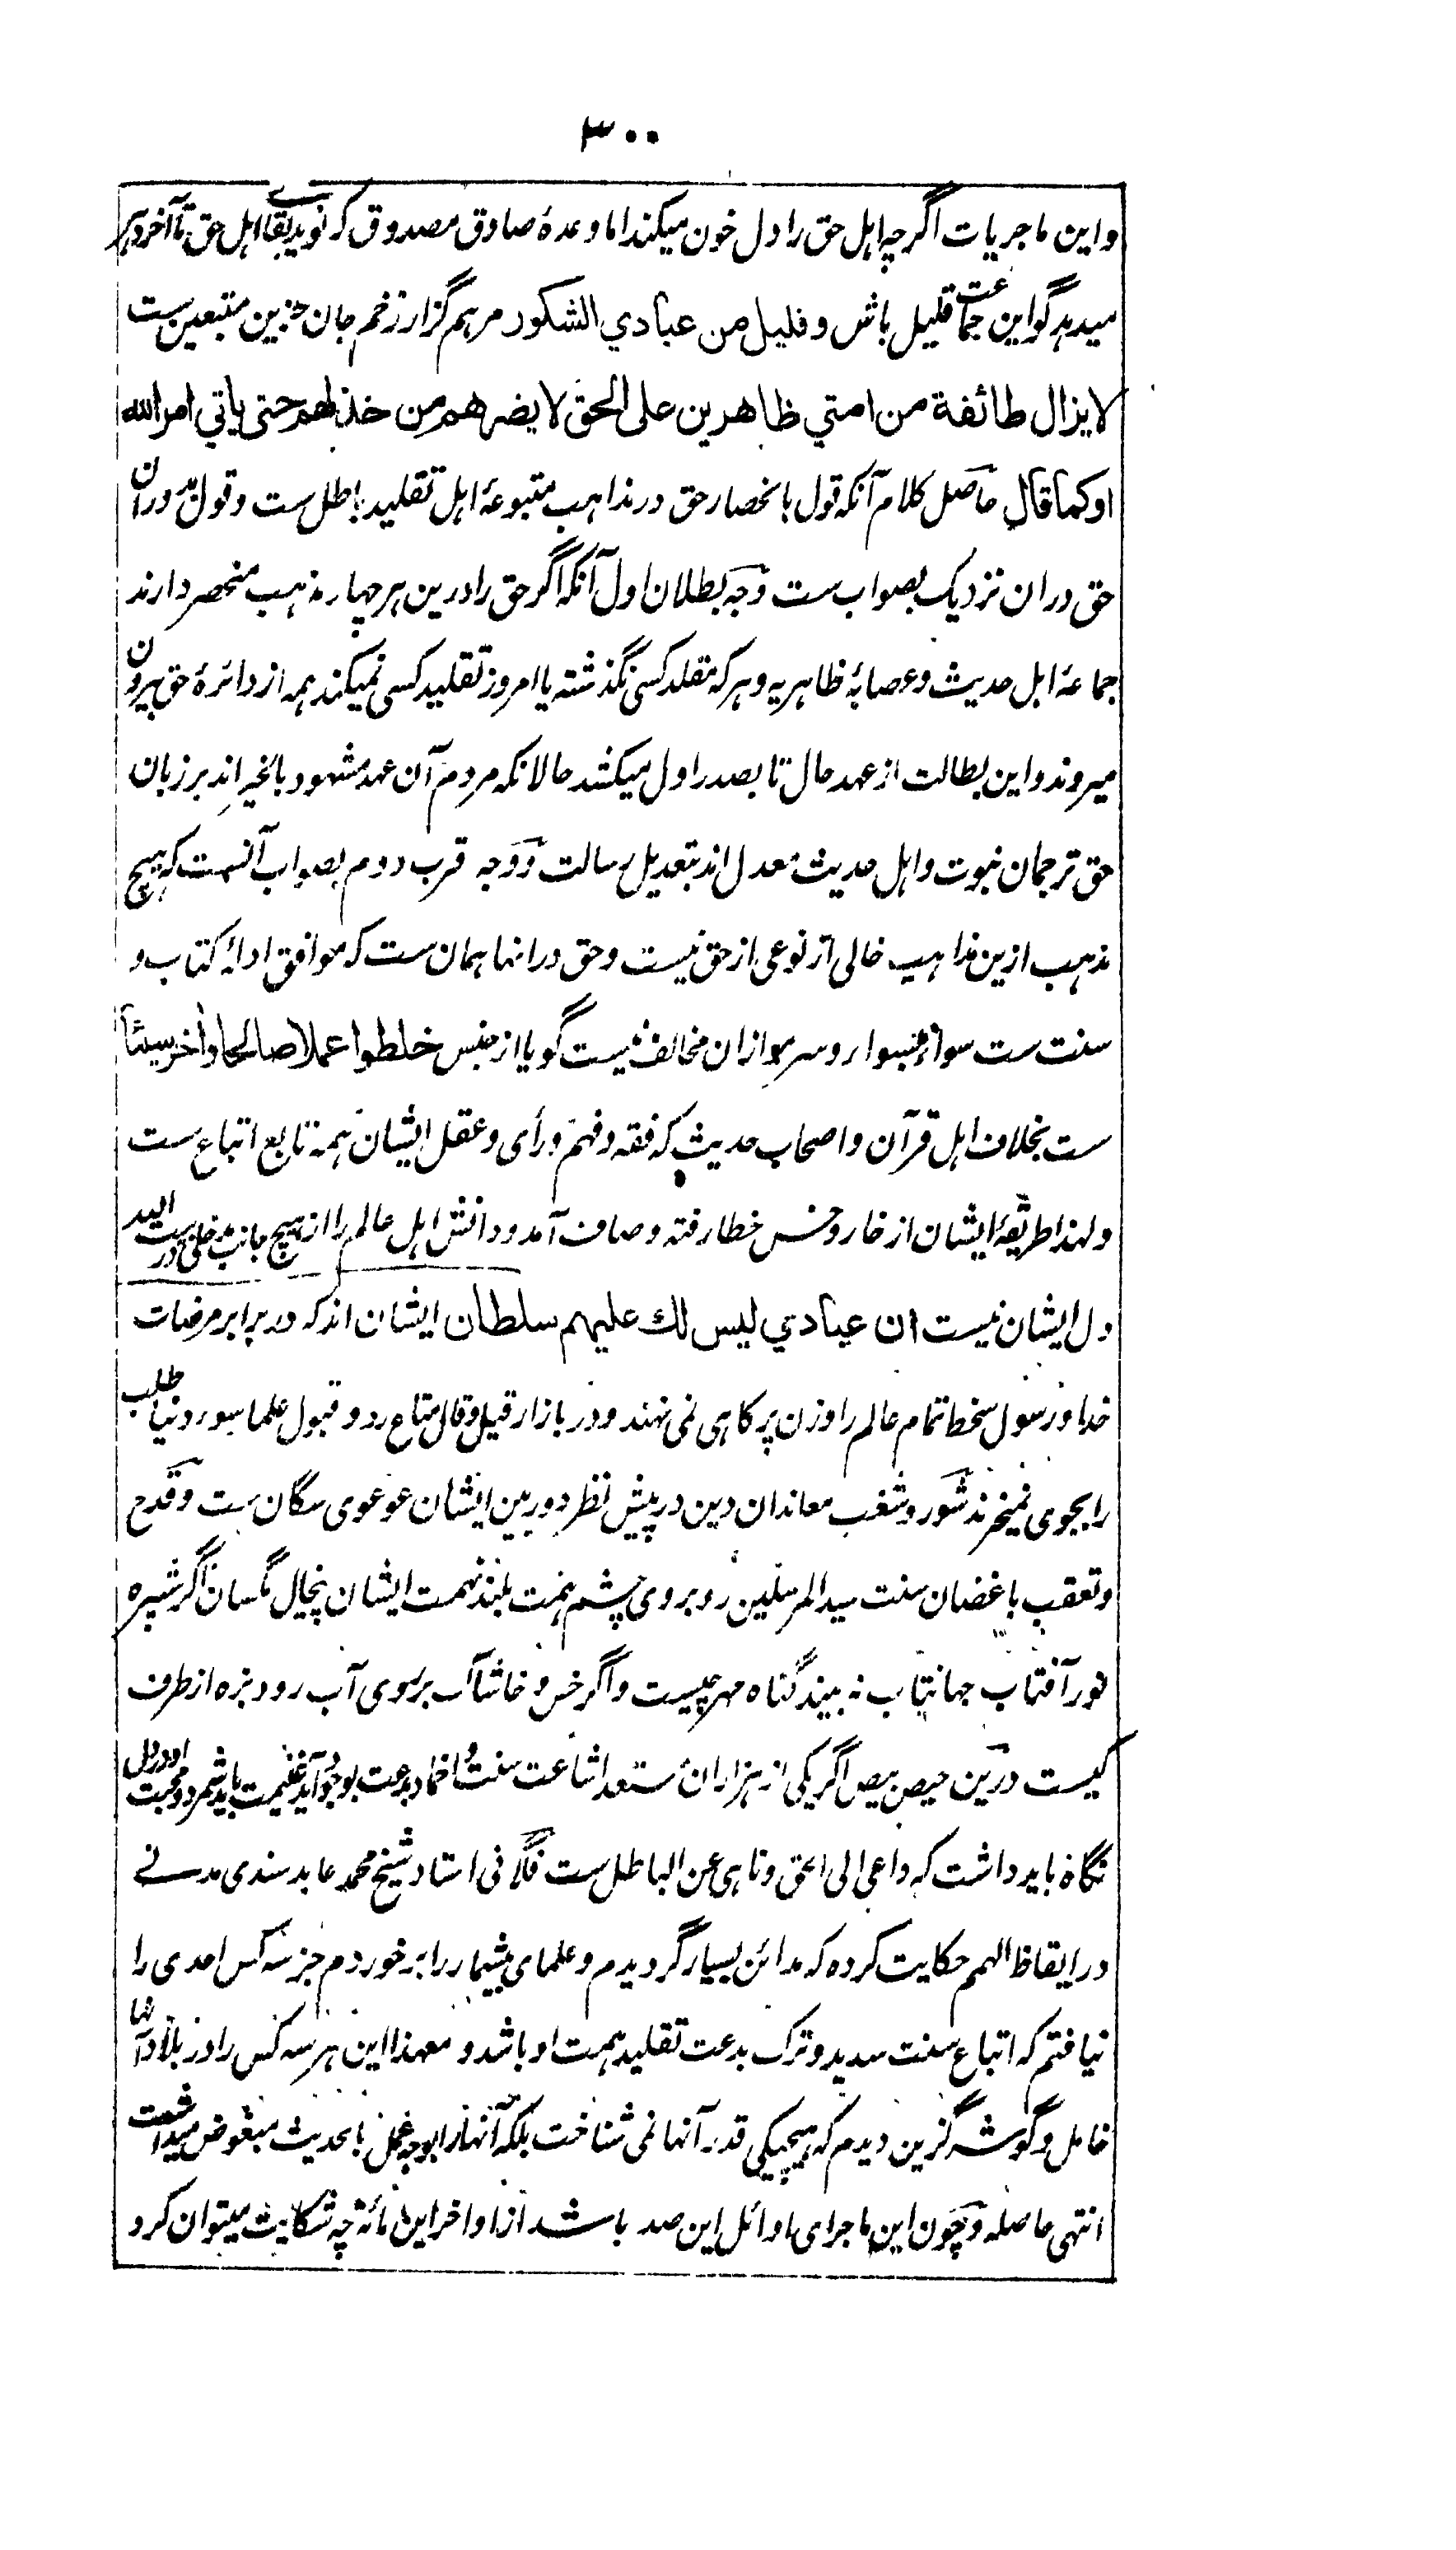 ۳۰۰
واین ماجریات اگرچه اهل حق را دل خون میکند اما وعدهٔ صادق مصدوق که نوید بقای اهل حق تا آخر دهر
میدهد گو این جماعت قلیل باش وقلیل من عبادي الشکور مرهم گزار زخم جان حزین متبعین ست
لا یزال طائفة من امتي ظاهرین علی الحق لا یضرهم من خذلهم حتی یاتي امر الله
او کما قال حاصل کلام آنکه قول بانحصار حق در مذاهب متبوعهٔ اهل تقلید باطل ست وقول بدوران
حق دران نزدیک بصواب ست وجه بطلان اول آنکه اگر حق را درین هر چهار مذهب منحصر دارند
جماعهٔ اهل حدیث وعصابهٔ ظاهریه وهر که مقلد کسی نگذشته یا امروز تقلید کسی نمیکند همه از دائرهٔ حق بیرون
میروند واین بطالت از عهد حال تا بصدر اول میکشد حالانکه مردم آن عهد مشهود بالخیر اند بر زبان
حق ترجمان نبوت واهل حدیث معدل اند بتعدیل رسالت ووجه قرب دوم بصواب آنست که هیچ
مذهب ازین مذاهب خالی از نوعی از حق نیست وحق در انها همان ست که موافق ادلهٔ کتاب و
سنت ست سواء بسواء وسر مو ازان مخالف نیست گویا از جنس خلطوا عملا صالحا وآخر سیئا
ست بخلاف اهل قرآن واصحاب حدیث که فقه وفهم ورأی وعقل ایشان همه تابع اتباع ست
ولهذا طریقهٔ ایشان از خار وخس خطا رفته وصاف آمد ودانش اهل عالم را از هیچ جانب دخلی در
دل ایشان نیست ان عبادي لیس لك علیهم سلطان ایشان اند که در برابر مرضات
خدا ورسول سخط تمام عالم را وزن پر کاهی نمی نهند ودر بازار قیل وقال متاع رد وقبول علماء سوء دنیا طلب
را بجوی نمیخرند شور وشغب معاندان دین در پیش نظر دوربین ایشان عوعوی سگان ست وقدح
وتعقب باغضان سنت سید المرسلین روبروی چشم همت بلند نهمت ایشان پنچال مگسان اگر شپره
نور آفتاب جهانتاب نه بیند گناه مهر چیست واگر خس وخاشاک بر روی آب رود بزه از طرف
کیست درین حیص بیص اگر یکی از هزاران مستعد اشاعت سنت واخماد بدعت بوجود آید غنیمت باید شمرد ومحبت او در دل
نگاه باید داشت که داعی الی الحق وناهی عن الباطل ست فلانی استاد شیخ محمد عابد سندی مدنے
در ایقاظ الهمم حکایت کرده که مدائن بسیار گردیدم وعلمای بیشمار را بر خوردم جز سه کس احدی را
نیافتم که اتباع سنت سدید وترک بدعت تقلید همت او باشد ومعهذا این هر سه کس را در بلاد آنها
خامل وگوشه گزین دیدم که هیچیکی قدر آنها نمی شناخت بلکه آنها را بوجه عمل بالحدیث مبغوض میداشت
انتهی حاصله وچون این ماجرای اوائل این صد باشد از اواخر این مائة چه شکایت میتوان کرد